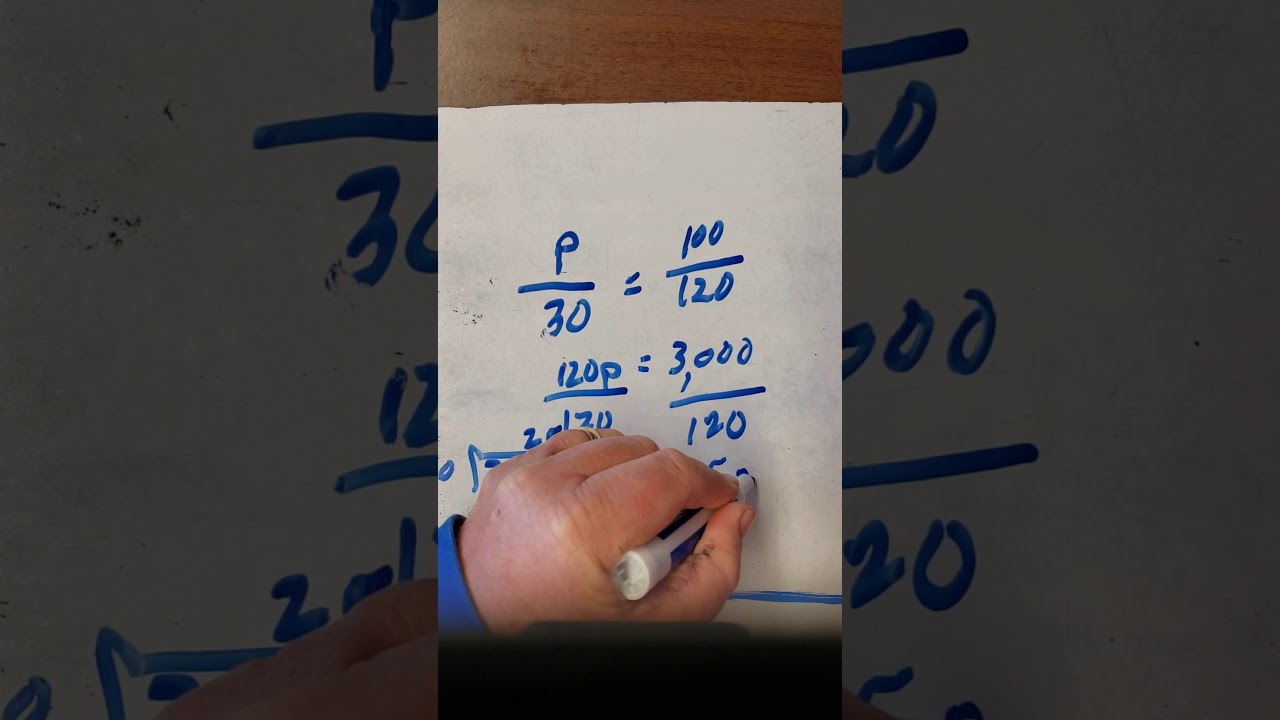 P/30 = 100/120
120p/120 = 3,000/120